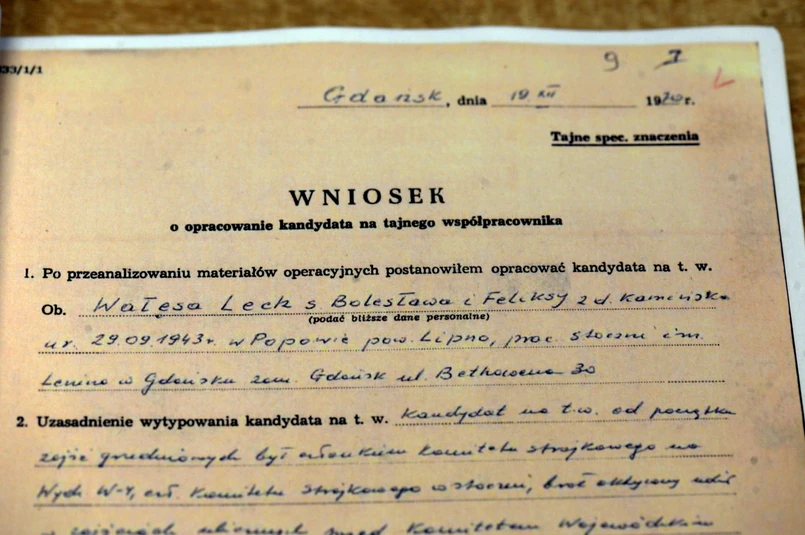 33/1/1
9 7
Gdańsk, dnia 19 XII 1970 r.
Tajne spec. znaczenia
WNIOSEK
o opracowanie kandydata na tajnego współpracownika
1. Po przeanalizowaniu materiałów operacyjnych postanowiłem opracować kandydata na t. w.
Ob. Wałęsa Lech s Bolesława i Feliksy z d. Kamińska
(podać bliższe dane personalne)
ur. 29.09.1943r. w Popowie pow. Lipno, prac. stoczni im.
Lenina w Gdańsku zam. Gdańsk ul. Bethowena 30
2. Uzasadnienie wytypowania kandydata na t. w. Kandydat na t.w. od początku
zajść grudniowych był członkiem Komitetu Strajkowego na
Wydz W-4, czł. Komitetu Strajkowego w stoczni, brał aktywny udział
w zajściach ulicznych przed Komitetem Wojewódzkim